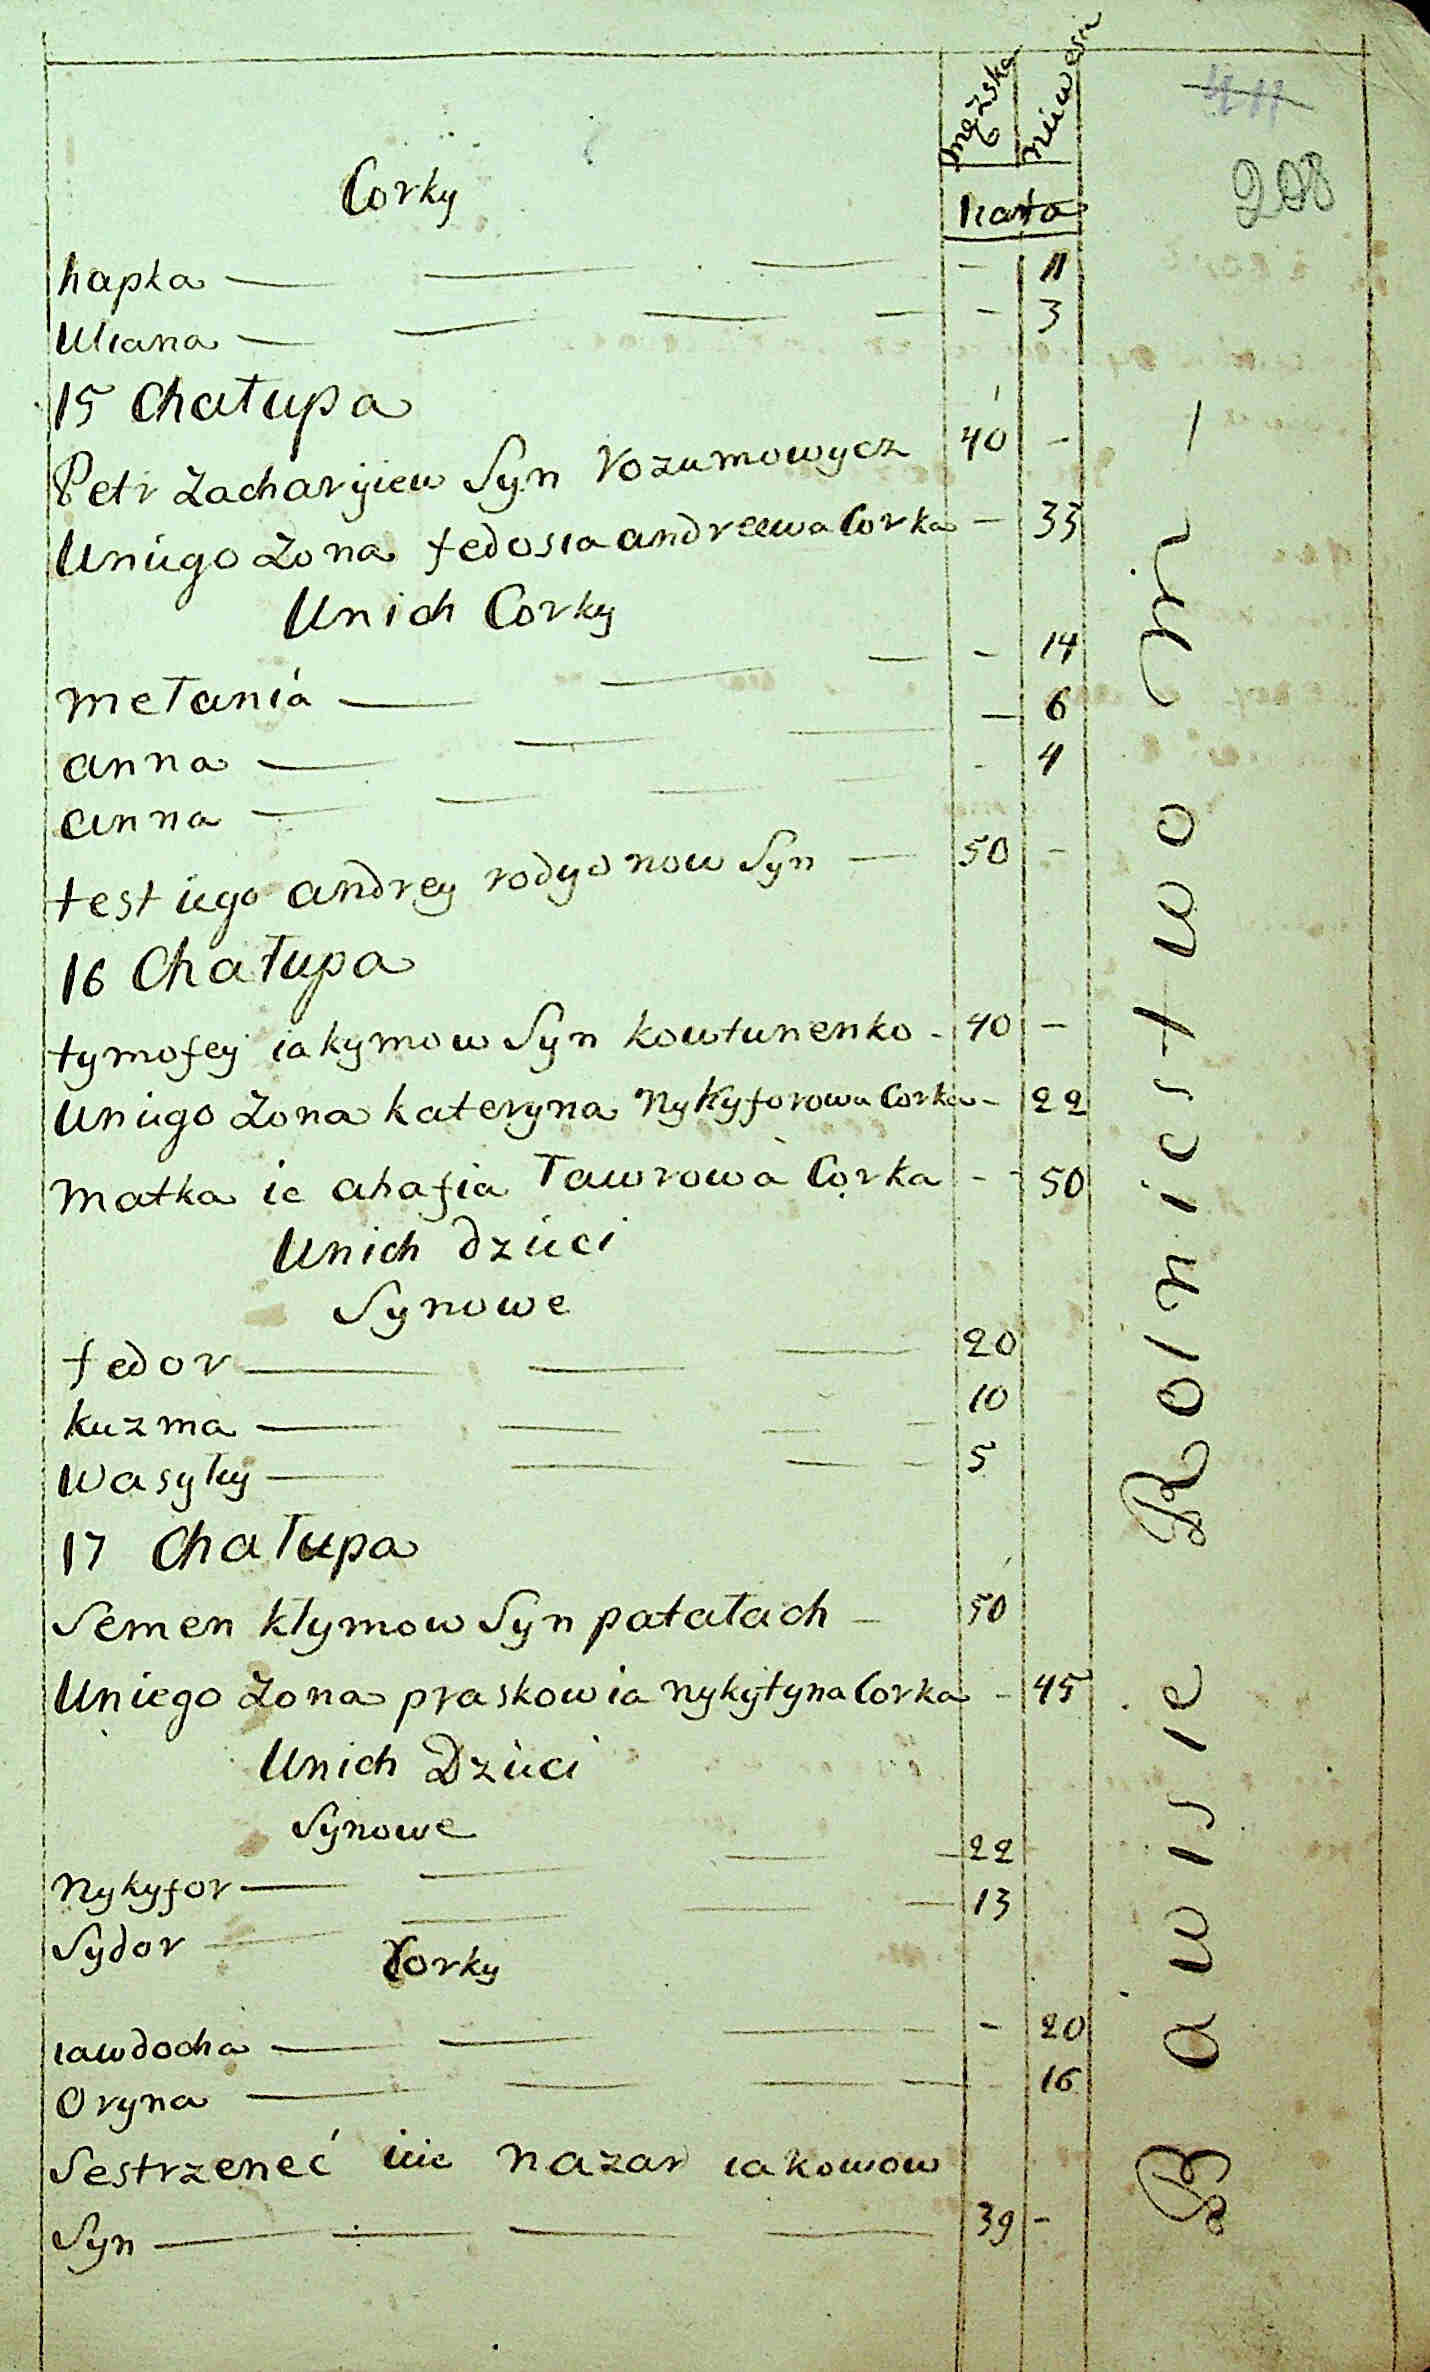 męzska niiwesia
41
208
Corky
Rata
hapka — — — - 11
Uliana — — — — - 3
15 Chałupa
Petr Zacharyiew Syn Rozumowycz 40 -
Uniigo Zona fedosia andreewa Corka - 33
Unich Corky
mełaniá — — — - 14
anna — — — — 6
anna — — — — - 4
test iego andrey rodyonow Syn — 50 -
16 Chałupa
tymofey iakymow Syn kowtunenko - 40 -
Uniigo Zona kateryna Nykyforowa Corka - 22
Matka ie ahafia ławrowa Corka - - 50
Unich dziici
Synowe
fedor — — — 20
kuzma — — — — 10
Wasyłỳ — — — - 5
17 Chałupa
Semen kłymow Syn patałach — 50
Uniego Zona praskowia nykytyna Corka - 45
Unich Dziici
Synowe
Nykyfor — — — — 22
Sydor — — — — 13
Corky
iawdocha — — — - 20
Oryna — — — — 16
Sestrzeneć iiie nazar iakowow
Syn — — — — 39 -
Bawisie Rolnictwo m —